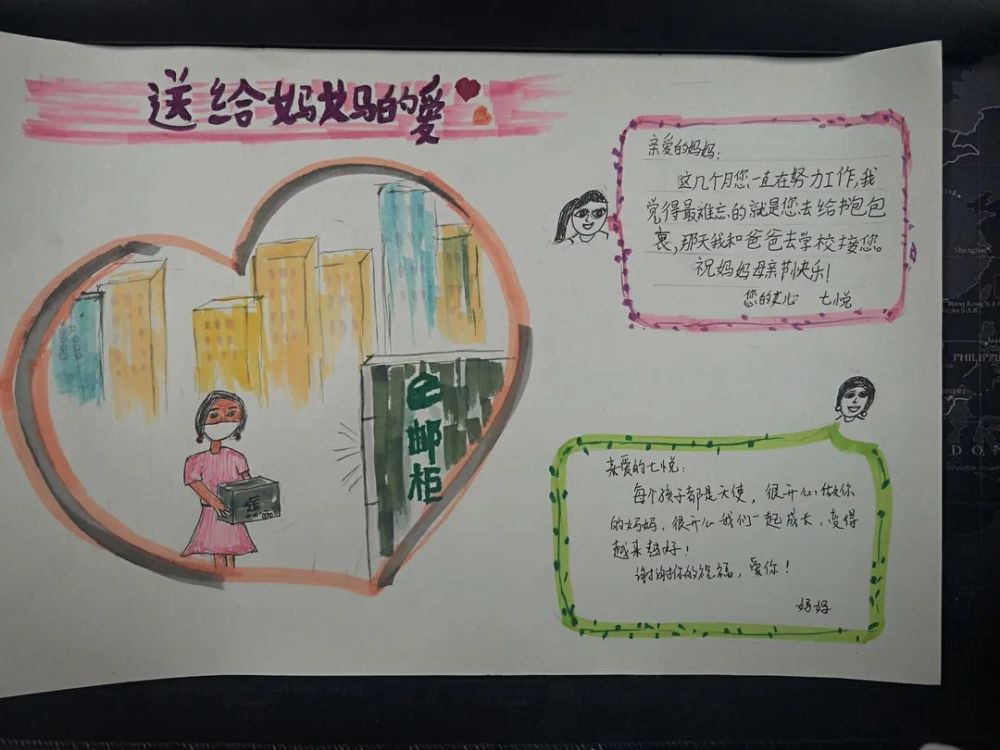 送给妈妈的爱
亲爱的妈妈:
这几个月您一直在努力工作,我
觉得最难忘的就是您去给书包包
裹,那天我和爸爸去学校接您。
祝妈妈母亲节快乐!
您的女心 七悦
e邮柜
亲爱的七悦:
每个孩子都是天使,很开心做你
的妈妈,很开心我们一起成长,变得
越来越好!
谢谢你的祝福,爱你!
妈妈
Shanghai
PHILIPPI